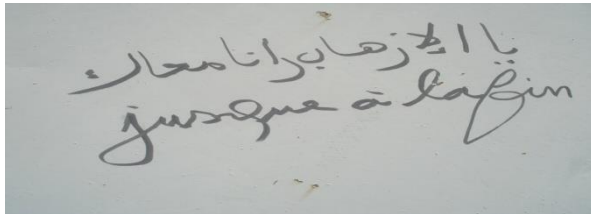 يا الإزهاب رانا معاك
jusque à la fin